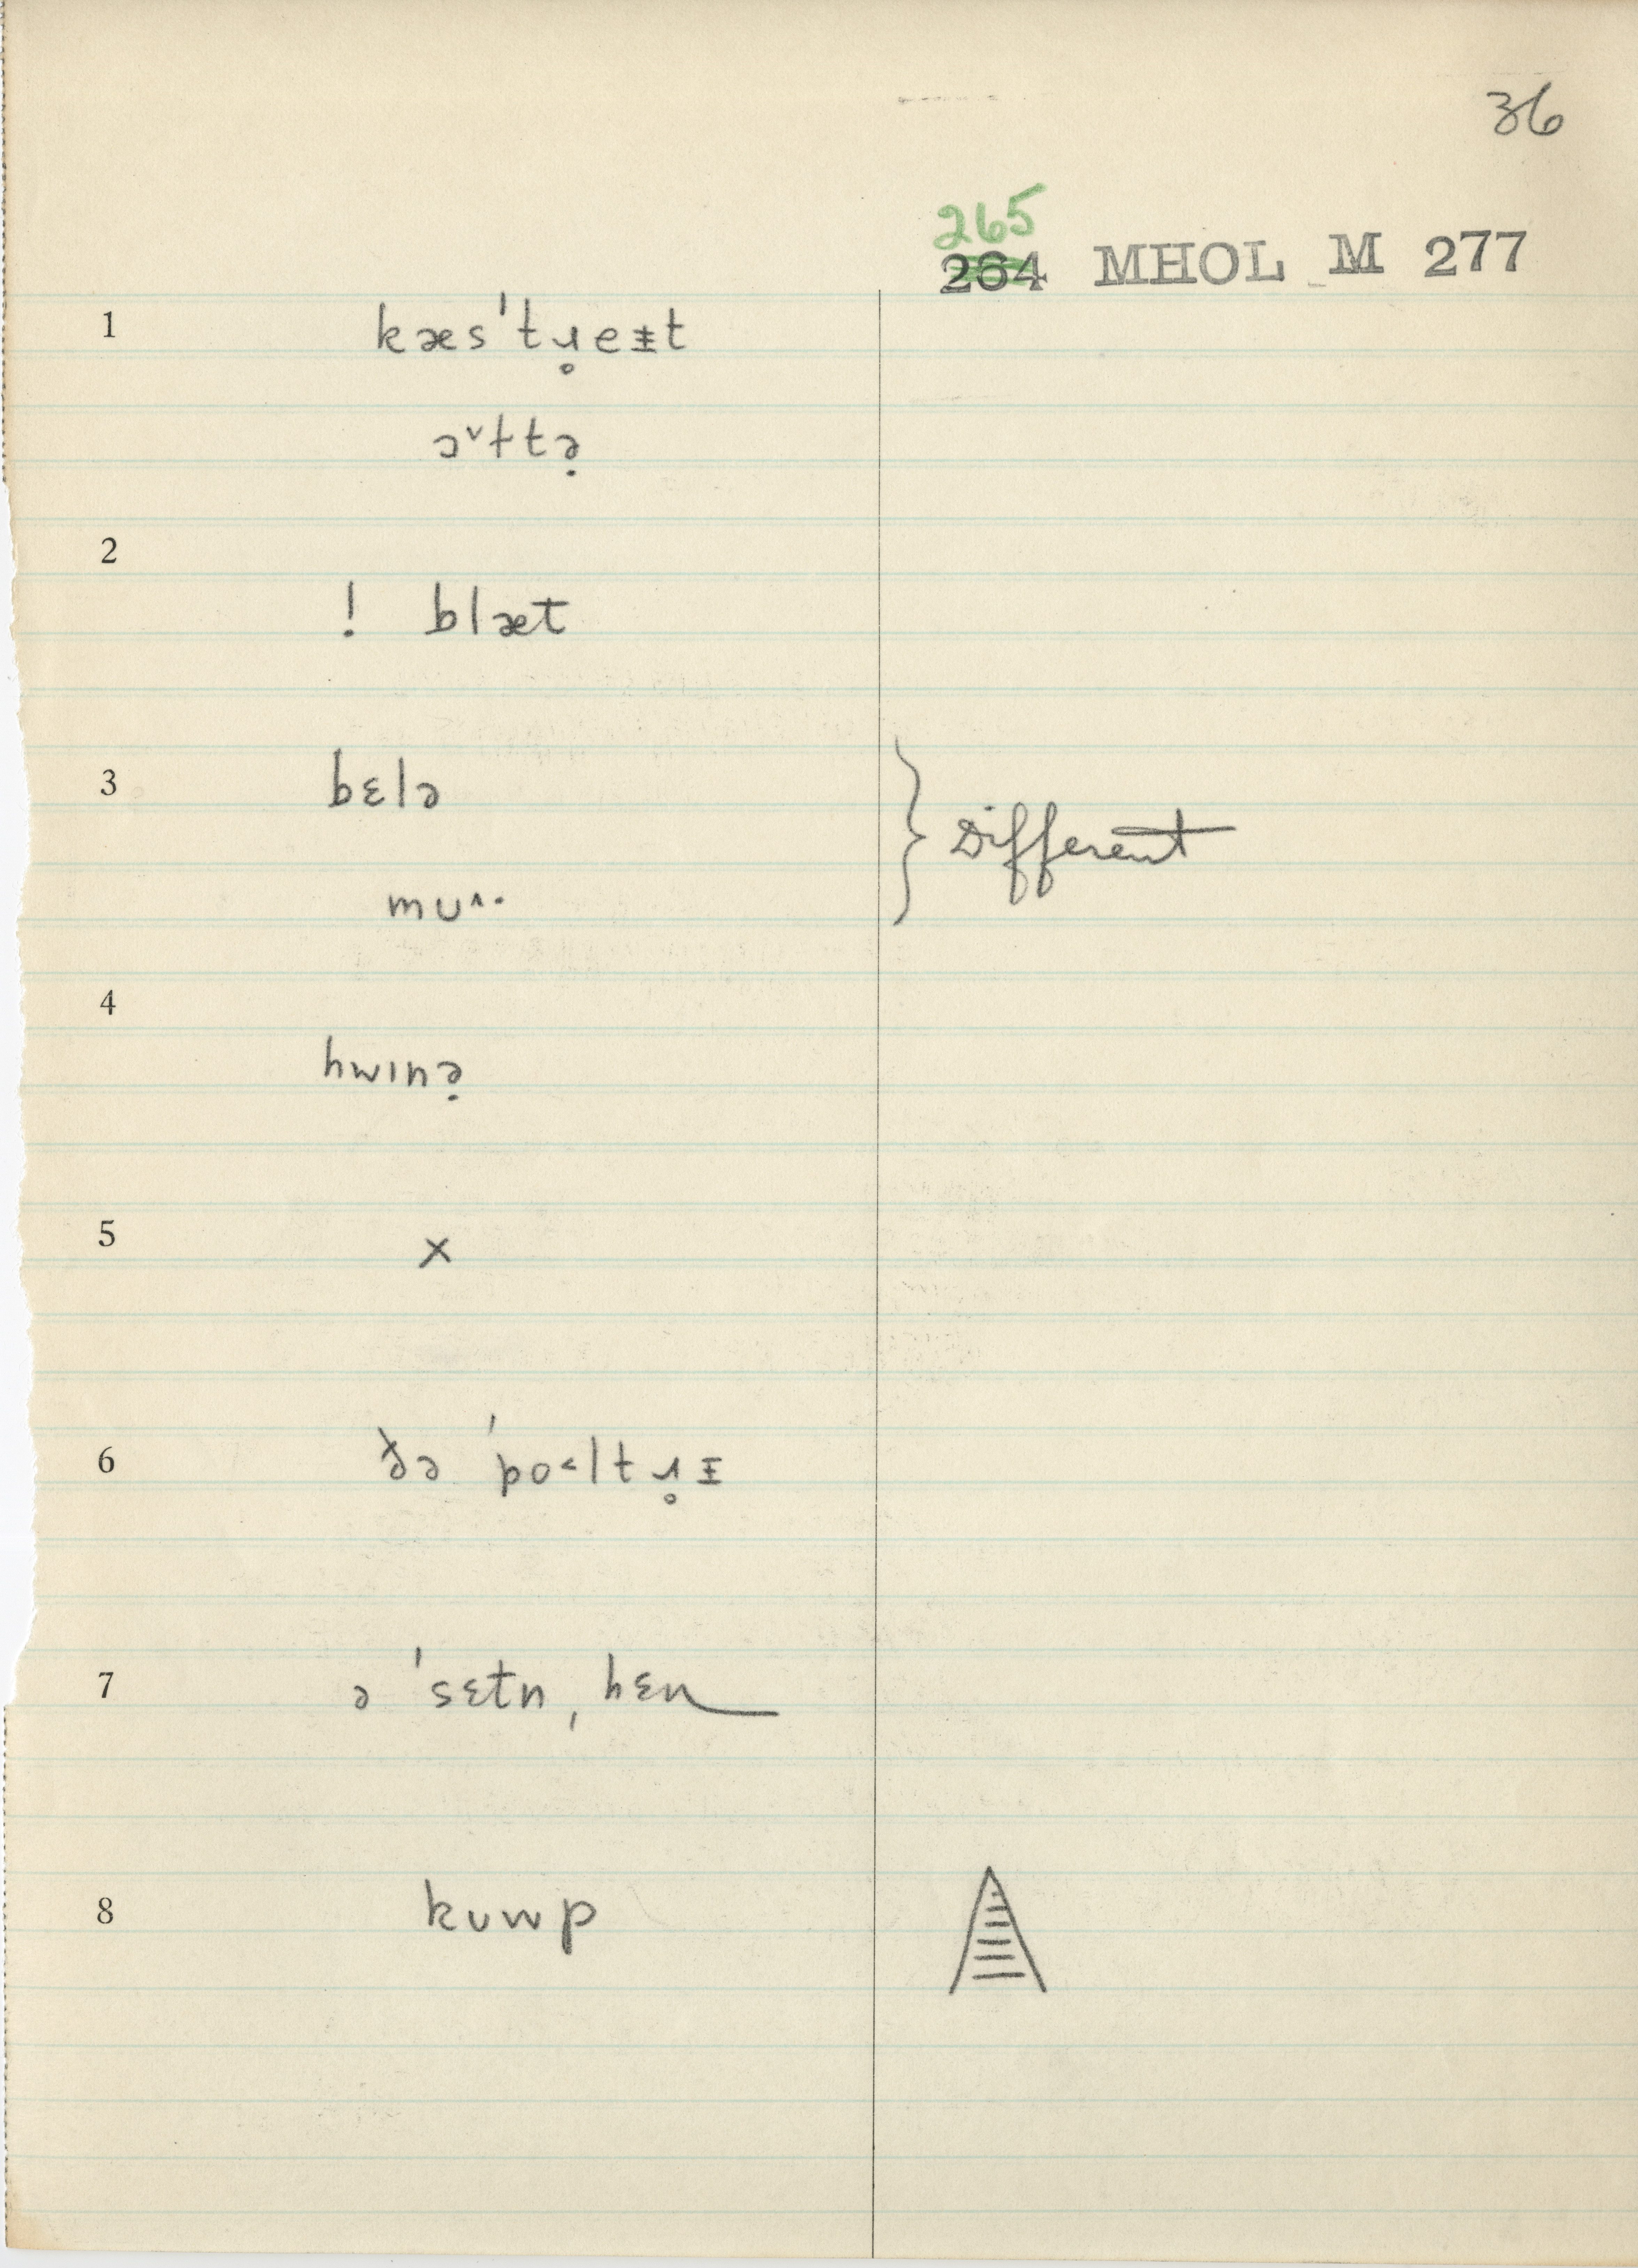 36
265
264 MHOL M 277
1 kæs'tɹ̥eᵻt
ɔ˅ɫtə̣
2
! blæt
3 bɛlə
} Different
mʊ^·
4
hwɪnə̣
5 ×
6 ðə 'po˂ltɹ̥ᵻ
7 ə 'sɛtn ˌhɛn
8 kʊwp